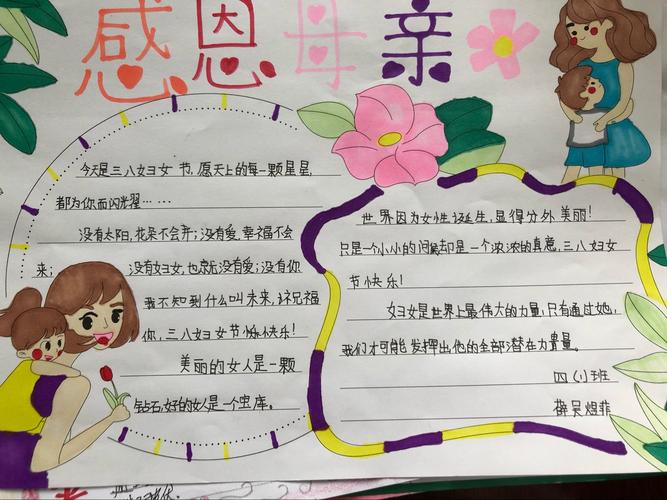 感恩母亲
今天是三八妇女节,愿天上的每一颗星星,
都为你而闪光耀……
没有太阳,花朵不会开;没有爱,幸福不会
来;没有妇女,也就没有爱;没有你
我不知到什么叫未来,祝福
你,三八妇女节愉快乐!
美丽的女人是一颗
钻石,好的女人是一个宝库。
世界因为女性诞生,显得分外美丽!
只是一个小小的问候却是一个浓浓的真意,三八妇女
节快乐!
妇女是世界上最伟大的力量,只有通过她,
我们才可能发挥出他的全部潜在力量。
四(1)班
吴煜菲